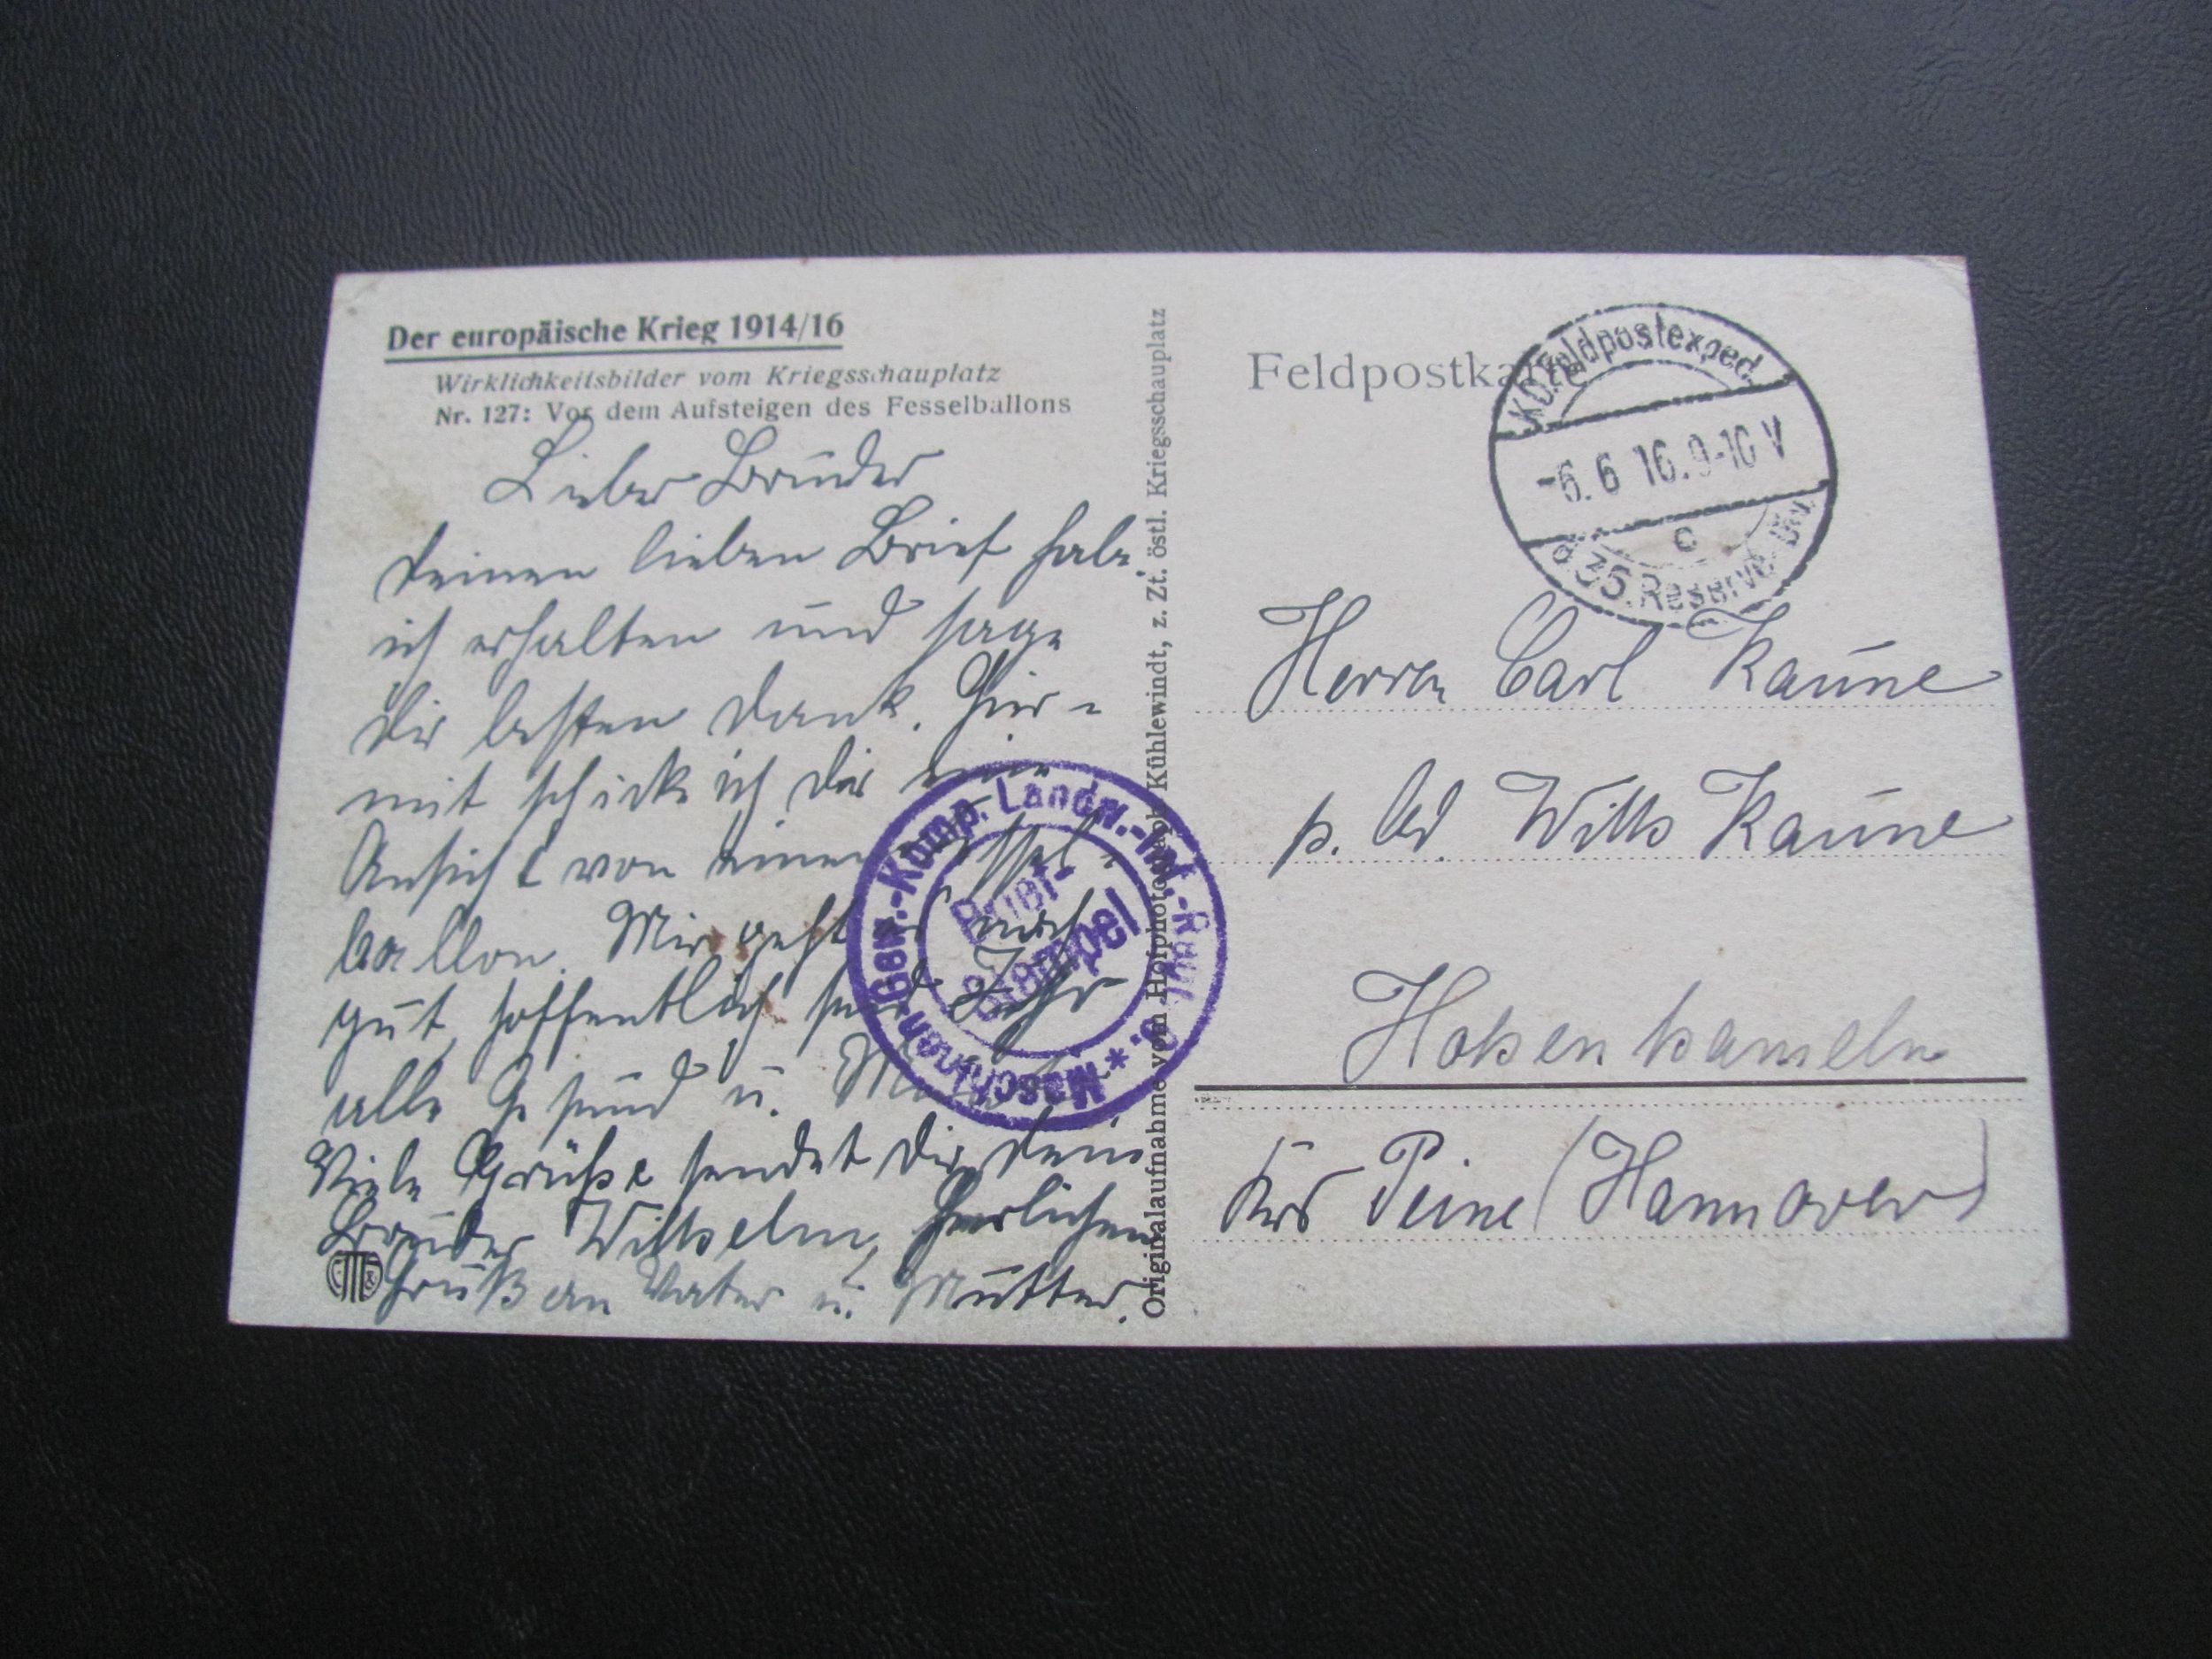 Der europäische Krieg 1914/16
Wirklichkeitsbilder vom Kriegsschauplatz
Nr. 127: Vor dem Aufsteigen des Fesselballons
Lieber Bruder
Deinen lieben Brief habe
ich erhalten und sage
Dir besten Dank. Hier-
mit schicke ich Dir eine
Ansicht von einem Fessel-
ballon. Mir geht es noch
gut, hoffentlich seid Ihr
alle Gesund u.
Viele Grüße sendet Dir Dein
Bruder Wilhelm, Herzlichen
Gruß an Vater u. Mutter.
Maschinen-Gew.-Komp. Landw.-Inf.-Regt.
Brief-
stempel
Originalaufnahme von Hofphotograph Kühlewindt, z. Zt. östl. Kriegsschauplatz
Feldpostkarte
K.D. Feldpostexped.
-6.6 16.9-10 V
c
d. 35. Reserve-Div.
Herrn Carl Kaune
p. Ad. Wilh Kaune
Hohenhameln
Krs Peine (Hannover)